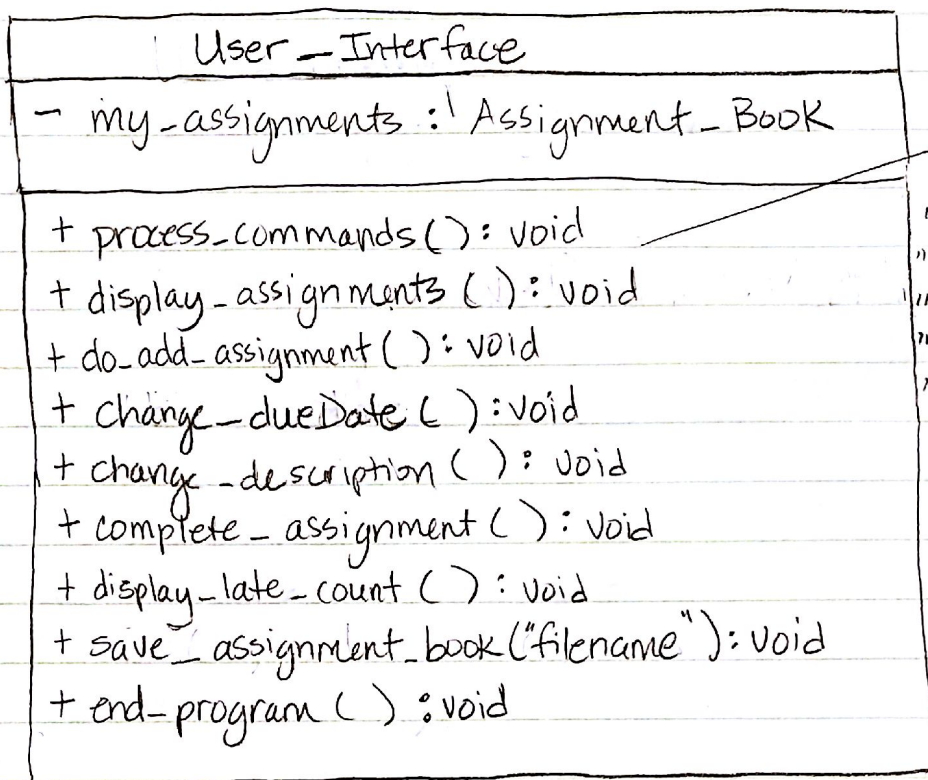 User_Interface
- my_assignments : Assignment_Book
+ process_commands(): void
+ display_assignments ( ): void
+ do_add_assignment( ): void
+ change_dueDate ( ): void
+ change_description ( ): void
+ complete_assignment ( ): void
+ display_late_count ( ): void
+ save_assignment_book("filename"): void
+ end_program ( ): void